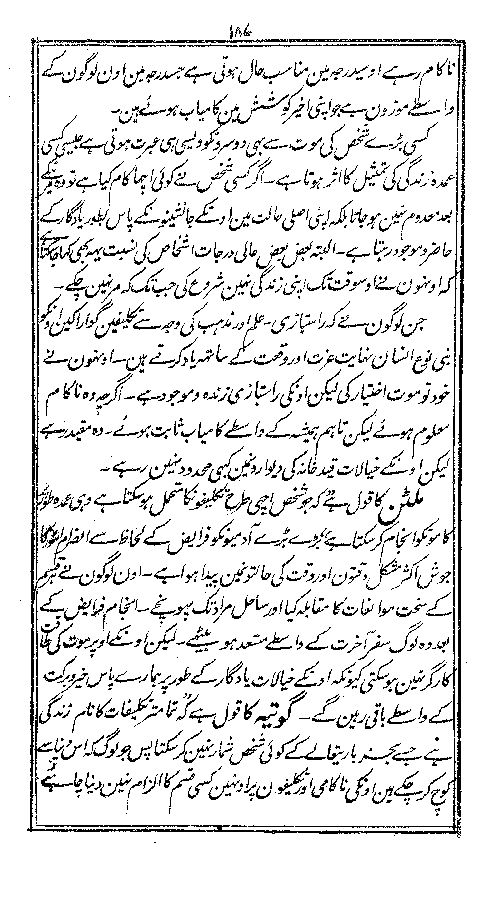 ۱۸۷
ناکام رہے اوسیدرجہ مین مناسب حال ہوتی ہے جسدرجہ مین اون لوگون کے
واسطے موزون ہے جو اپنی اخیر کوشش مین کامیاب ہوئے ہین۔
کسی بڑے شخص کی موت سے بہی دوسرونکو ویسی ہی عبرت ہوتی ہے جیسی کسی
عمدہ زندگی کی تمثیل کا اثر ہوتا ہے۔ اگر کسی شخص نے کوئی اچہا کام کیا ہے تو وہ مرنیکے
بعد معدوم نہین ہوجاتا بلکہ اپنی اصلی حالت مین اوسکے جانشینونکے پاس بطور یادگار کے
حاضر و موجود رہتا ہے۔ البتہ بعض بعض عالی درجات اشخاص کی نسبت یہہ بہی کہا جاسکتا ہے
کہ اونہون نے اوسوقت تک اپنی زندگی نہین شروع کی جب تک کہ مر نہین چکے۔
جن لوگون نے کہ راستبازی۔ علم اور مذہب کی وجہ سے تکلیفین گوارا کین اونکو
بنی نوع انسان نہایت عزت اور وقعت کے ساتہہ یاد کرتے ہین۔ اونہون نے
خود تو موت اختیار کی لیکن اونکی راستبازی زندہ و موجود ہے۔ اگرچہ وہ ناکام
معلوم ہوئے لیکن تاہم ہمیشہ کے واسطے کامیاب ثابت ہوئے۔ وہ مقید رہے
لیکن اونکے خیالات قید خانہ کی دیوارونمین کبہی محدود نہین رہے۔
ملٹن کا قول ہے کہ جو شخص اچہی طرح تکلیفونکا متحمل ہوسکتا ہے وہی عمدہ طور پر
کامونکو انجام کرسکتا ہے بڑے بڑے آدمیونکو فرایض کے لحاظ سے انصرام امور کا
جوش اکثر مشکل وقتون اور وقت کی حالتونمین پیدا ہوا ہے۔ اون لوگون نے
کے سخت موانعات کا مقابلہ کیا اور ساحل مراد تک پہونچے۔ انجام فرایض کے
بعد وہ لوگ سفر آخرت کے واسطے مستعد ہو بیٹہے۔ لیکن اونکے اوپر موت کی طاقت
کارگر نہین ہوسکتی کیونکہ اونکے خیالات یادگار کے طور پر ہمارے پاس خیر و برکت
کے واسطے باقی رہین گے۔ گوٹیہ کا قول ہے کہ تمامتر تکلیفات کا نام زندگی
ہے جسے بجز باریتعالے کے کوئی شخص شمار نہین کرسکتا پس جو لوگ کہ اس دنیا سے
کوچ کرچکے ہین اونکی ناکامی اور تکلیفون پر اونہین کسی قسم کا الزام نہین دینا چاہئے